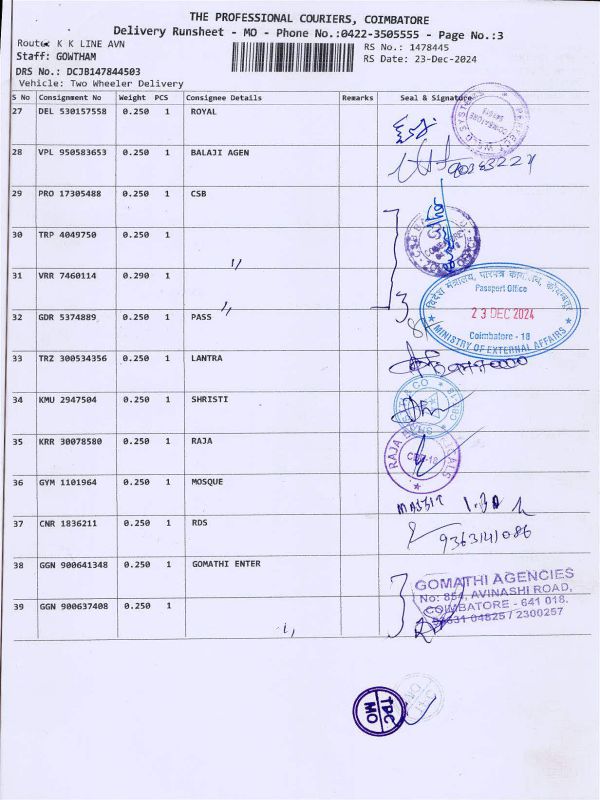 THE PROFESSIONAL COURIERS, COIMBATORE
Delivery Runsheet - MO - Phone No.:0422-3505555 - Page No.:3
Route: K K LINE AVN
RS No.: 1478445
Staff: GOWTHAM
RS Date: 23-Dec-2024
DRS No.: DCJB147844503
Vehicle: Two Wheeler Delivery
S No Consignment No Weight PCS Consignee Details Remarks Seal & Signature
27 DEL 530157558 0.250 1 ROYAL
28 VPL 950583653 0.250 1 BALAJI AGEN
29 PRO 17305488 0.250 1 CSB
30 TRP 4049750 0.250 1 〃
31 VRR 7460114 0.290 1 〃
32 GDR 5374889 0.250 1 PASS
विदेश मंत्रालय, पारपत्र कार्यालय, कोयंबतूर
Passport Office
23 DEC 2024
Coimbatore - 18
★ MINISTRY OF EXTERNAL AFFAIRS ★
33 TRZ 300534356 0.250 1 LANTRA
34 KMU 2947504 0.250 1 SHRISTI
35 KRR 30078580 0.250 1 RAJA
RAJA
CBE-18
36 GYM 1101964 0.250 1 MOSQUE
37 CNR 1836211 0.250 1 RDS
9363141086
38 GGN 900641348 0.250 1 GOMATHI ENTER
GOMATHI AGENCIES
No: 854, AVINASHI ROAD,
COIMBATORE - 641 018.
39 GGN 900637408 0.250 1 〃
04825 / 2300257
TPC
MO